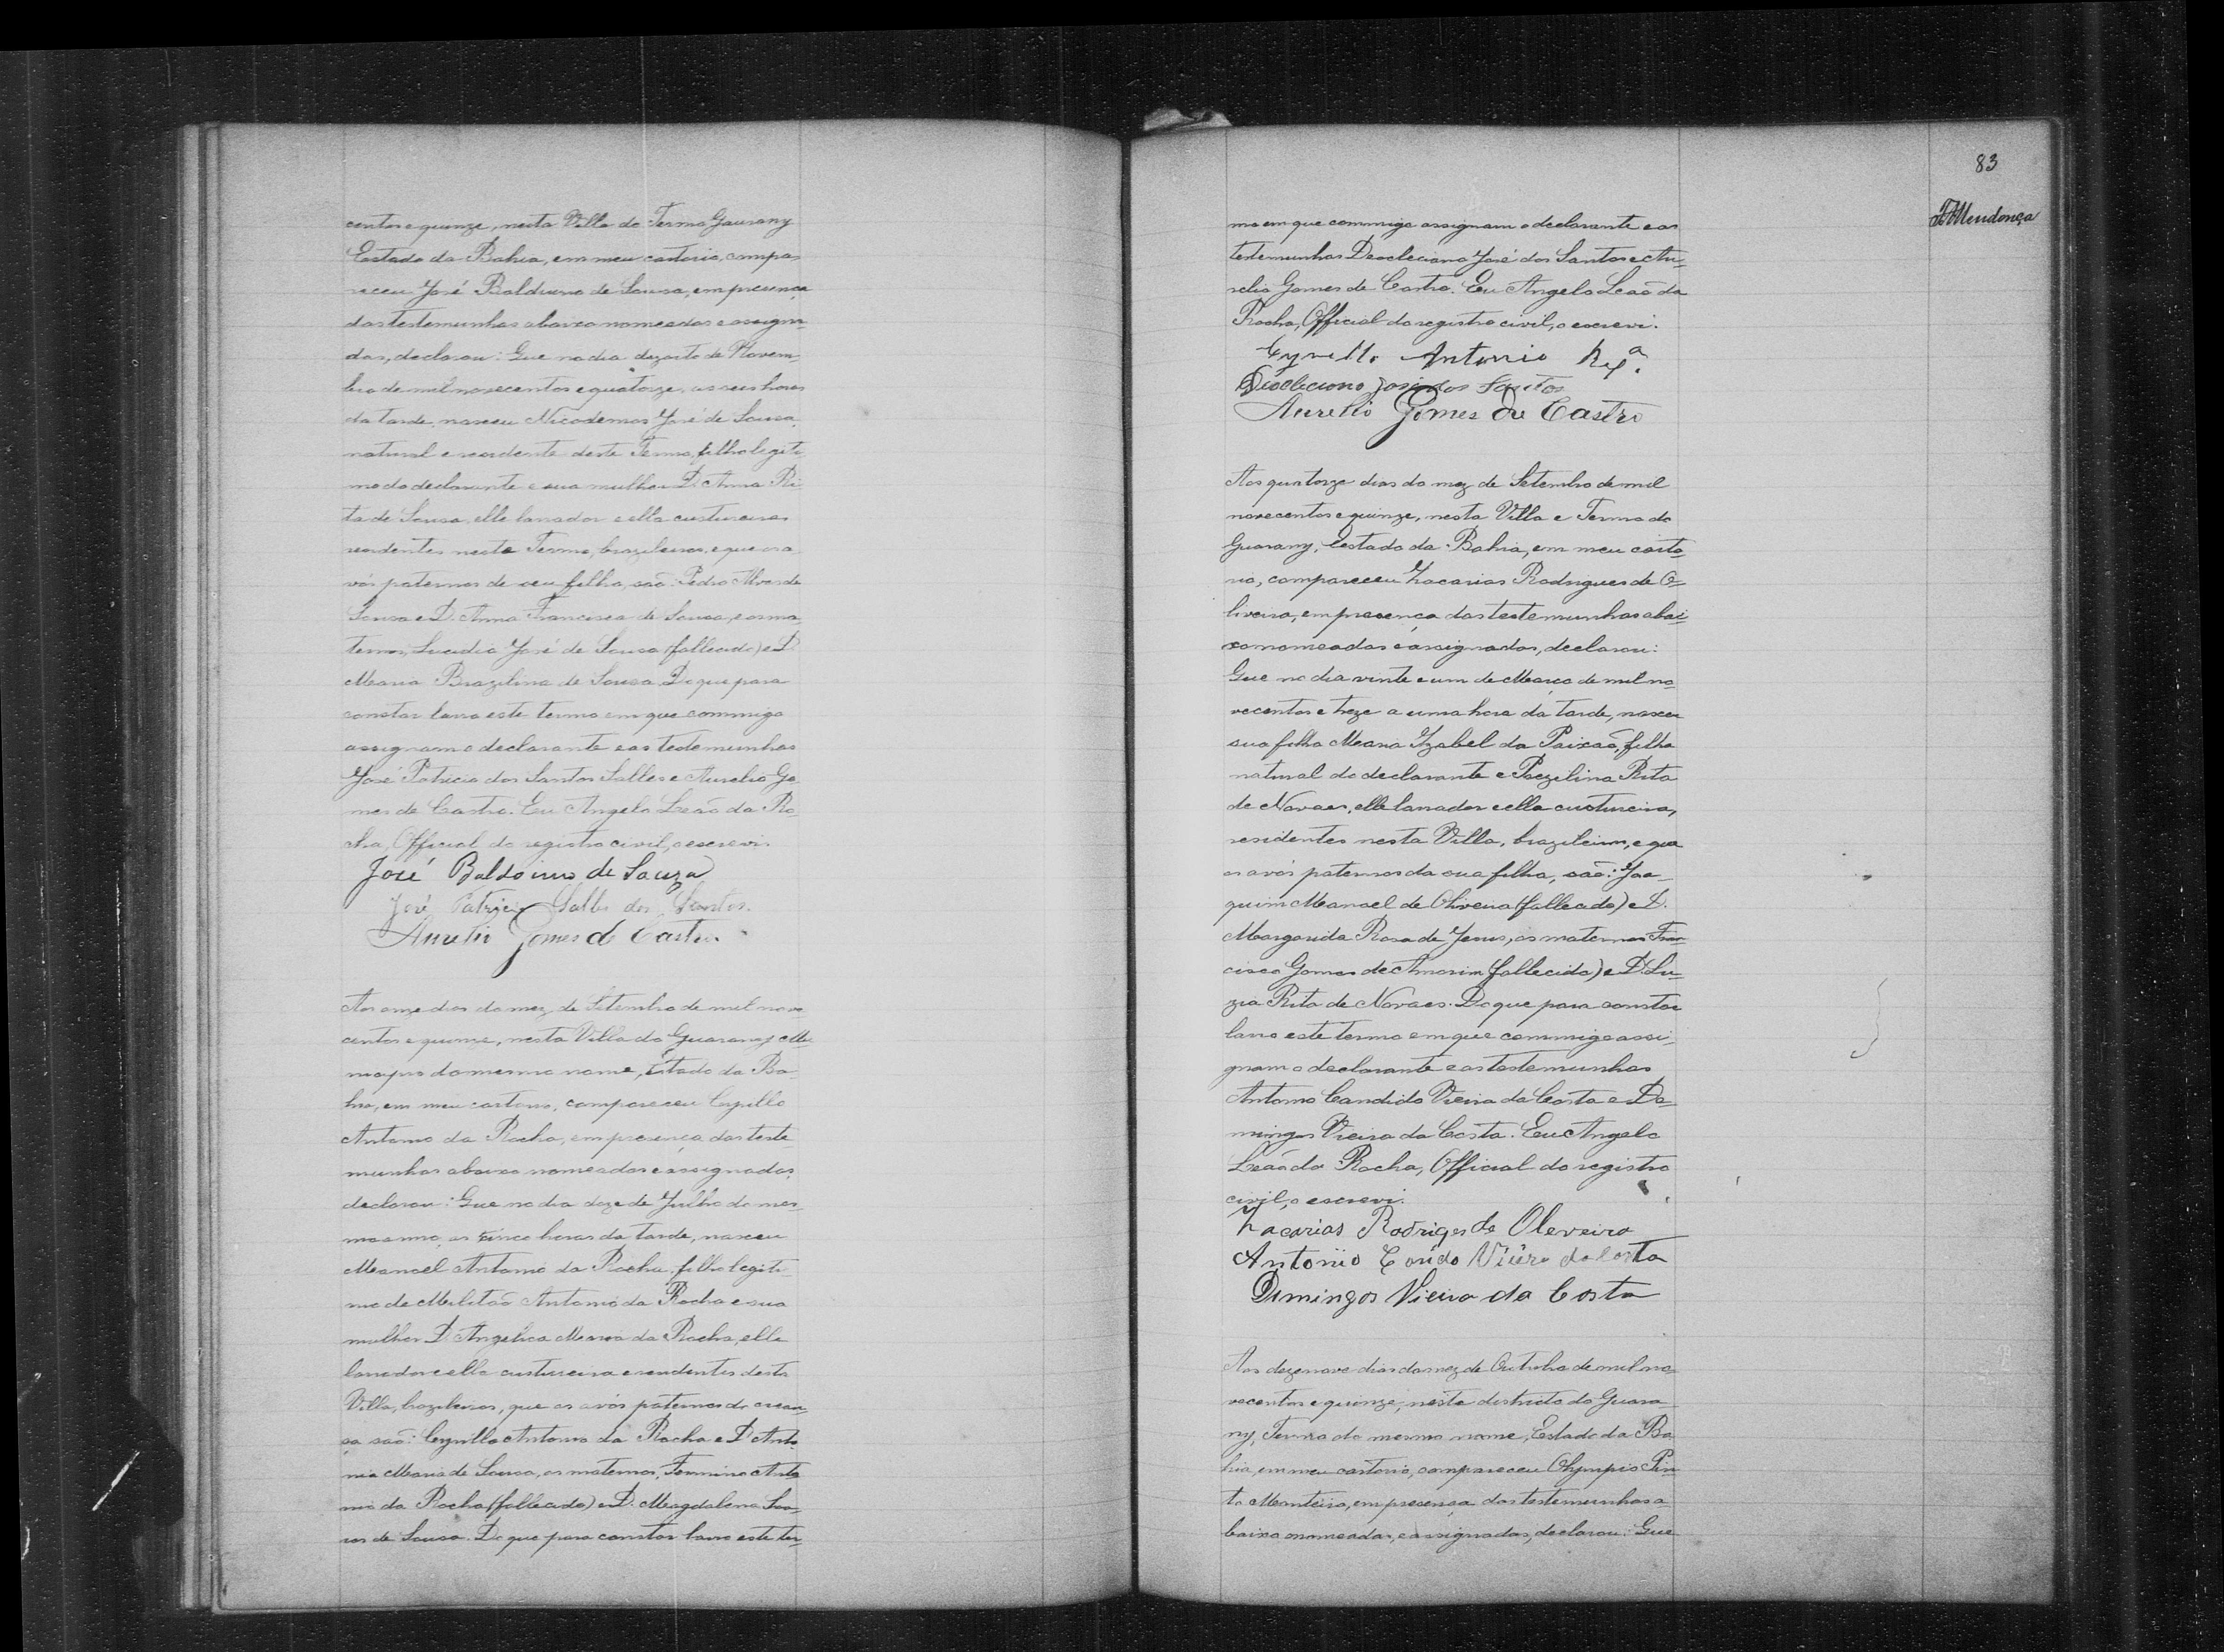 centos e quinze, nesta Villa do Termo Gaurany
Estado da Bahia, em meu cartorio, compa-
receu José Balduino de Sousa, em presença
das testemunhas abaixo nomeadas e assigna-
das, declarou: Que no dia dezoito de Novem-
bro de mil novecentos e quatorze, as seis horas
da tarde, nasceu Nicodemos José de Sousa,
natural e residente deste Termo, filho legiti-
mo do declarante e sua mulher D. Anna Ri-
ta de Sousa, elle lavrador e ella custureira
residentes neste Termo, brazileiros, e que os a-
vós paternos de seu filho, são: Pedro Alves de
Sousa e D. Anna Francisca de Sousa, e os ma-
ternos, José de Sousa (fallecido) e D.
Maria Brazilina de Sousa. Do que para
constar lavro este termo em que commigo
assignam o declarante e as testemunhas
José Patricio dos Santos Salles e Aurelio Go-
mes de Castro. Eu Angelo Leão da Ro-
cha, Official do registro civil, o escrevi.
José Baldoino de Souza
José Patricio Salles dos Santos.
Aurelio Gomes de Castro.
Aos onze dias do mez de Setembro de mil nove
centos e quinze, nesta Villa do Guarany
do mesmo nome, Estado da Ba-
hia, em meu cartorio, compareceu Cyrillo
Antonio da Rocha, em presença das teste
munhas abaixo nomeadas e assignadas,
declarou: Que no dia doze de Julho do mes-
mo anno, as cinco horas da tarde, nasceu
Manoel Antonio da Rocha, filho legiti-
mo de Militão Antonio da Rocha e sua
mulher D. Angelica Maria da Rocha, elle
lavrador e ella custureira e residentes desta
Villa, brazileiros, que os avós paternos da crean-
ça são: Cyrillo Antonio da Rocha e D. Anto
nia Maria de Sousa, os maternos, Firmino Anto
nio da Rocha (fallecido) e D. Magdalena
de Sousa. Do que para constar lavro este ter-
83
Mendonça
mo em que commigo assignam o declarante e as
testemunhas Deocleciano José dos Santos e Au-
relio Gomes de Castro. Eu Angelo Leão da
Rocha, Official do registro civil, o escrevi.
Cyrillo Antonio
Diocleciono José dos Santos
Aurelio Gomes de Castro
Aos quatorze dias do mez de Setembro de mil
novecentos e quinze, nesta Villa e Termo do
Guarany, Estado da Bahia, em meu carto-
rio, compareceu Zacarias Rodrigues de O-
liveira, em presença das testemunhas abai-
xo nomeadas e assignadas, declarou:
Que no dia vinte e um de Março de mil no-
vecentos e treze a uma hora da tarde, nasceu
sua filha Maria Izabel da Paixão, filha
natural do declarante e Rita
de Novaes, elle lavrador e ella custureira,
residentes nesta Villa, brazileiros, e que
os avós paternos da sua filha, são: Joa-
quim Manoel de Oliveira (fallecido) e D.
Margarida Rosa de Jesus, os maternos Fran-
cisco Gomes de Amorim (fallecido) e D. Lu-
zia Rita de Novaes. Do que para constar
lavro este termo em que commigo assi-
gnam o declarante e as testemunhas
Antonio Candido Vieira da Costa e Do-
mingos Vieira da Costa. Eu Angelo
Leão da Rocha, Official do registro
civil, o escrevi.
Zacarias Rodriges de Oleveira
Antonio Vieira da Costa
Domingos Vieira da Costa
Aos dezenove dias do mez de Outubro de mil no-
vecentos e quinze, neste districto do Guara-
ny, Termo do mesmo nome, Estado da Ba
hia, em meu cartorio, compareceu Olympio Pin
to Monteiro, em presença das testemunhas a-
baixo nomeadas, e assignadas, declarou: Que